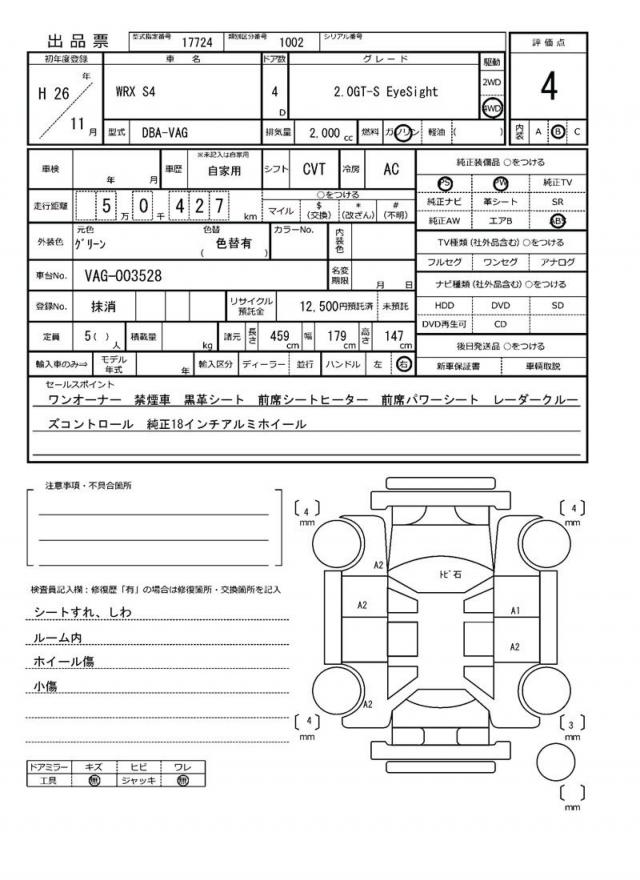 出品票 型式指定番号 17724 類別区分番号 1002 シリアル番号
評価点
4
初年度登録 車名 ドア数 グレード 駆動
H 26 年 11 月 WRX S4 4 D 2.0GT-S EyeSight 2WD 4WD
型式 DBA-VAG 排気量 2,000 cc 燃料 ガソリン 軽油 ( ) 内装 A B C
車検 年 月 車歴 ※未記入は自家用 自家用 シフト CVT 冷房 AC
走行距離 5 万 0 千 4 2 7 km ○をつける マイル $ (交換) * (改ざん) # (不明)
外装色 元色 グリーン 色替 ( 色替有 ) カラーNo. 内装色
車台No. VAG-003528 名変期限 月 日
登録No. 抹消 リサイクル預託金 12,500円預託済 未預託
定員 5( ) 人 積載量 kg 諸元 長さ 459 cm 幅 179 cm 高さ 147 cm
輸入車のみ⇒ モデル年式 年 輸入区分 ディーラー 並行 ハンドル 左 右
純正装備品 ○をつける
PS PW 純正TV
純正ナビ 革シート SR
純正AW エアB ABS
TV種類 (社外品含む) ○をつける
フルセグ ワンセグ アナログ
ナビ種類 (社外品含む) ○をつける
HDD DVD SD
DVD再生可 CD
後日発送品 ○をつける
新車保証書 車輌取説
セールスポイント
ワンオーナー 禁煙車 黒革シート 前席シートヒーター 前席パワーシート レーダークルー
ズコントロール 純正18インチアルミホイール
注意事項・不具合箇所
検査員記入欄：修復歴「有」の場合は修復箇所・交換箇所を記入
シートすれ、しわ
ルーム内
ホイール傷
小傷
ドアミラー キズ ヒビ ワレ
工具 無 ジャッキ 無
[ 4 ] mm
[ 4 ] mm
A2
トビ石
A2
A1
A2
A2
[ 4 ] mm
[ 3 ] mm
[ ] mm